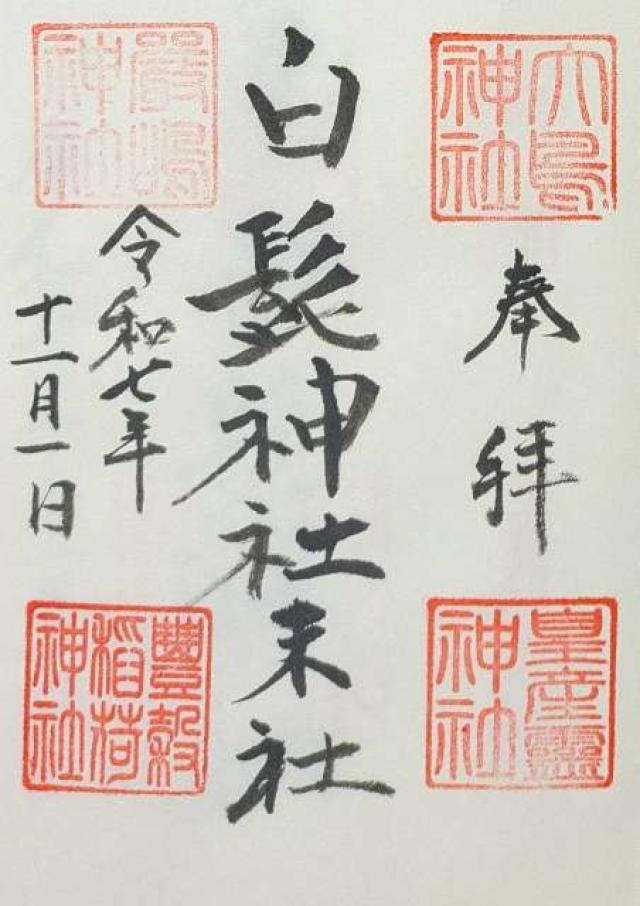 大鳥
神社
奉拝
皇産靈
神社
白髭神社末社
嚴嶋
神社
令和七年
十一月一日
豐穀
稲荷
神社